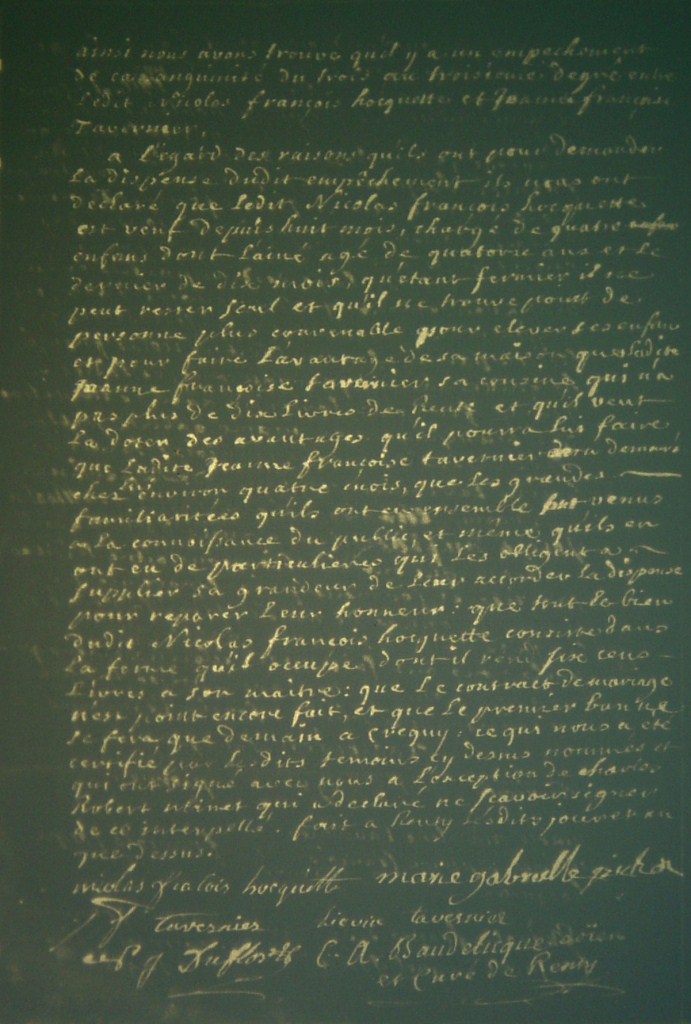 ainsi nous avons trouvé qu'il y a un empechement
de consanguinité du trois au troisieme degré entre
Ledit Nicolas françois hocquette et Jeanne françoise
Tavernier.
a L'egard des raisons qu'ils ont pour demander
La dispense dudit empêchement ils nous ont
declaré que Ledit Nicolas françois hocquette
est veuf depuis huit mois, chargé de quatre
enfans dont L'ainé agé de quatorze ans et Le
dernier de dix mois, qu'etant fermier il ne
peut rester seul et qu'il ne trouve point de
personne plus convenable pour elever ses enfans
et pour faire L'avantage de sa maison que Ladite
Jeanne françoise tavernier sa cousine qui n'a
pas plus de dix Livres de Rente et qu'il veut
La doter des avantages qu'il pourra Lui faire
que Ladite Jeanne françoise tavernier a demeuré
chez d'environ quatre mois, que Les grandes
familiaritées qu'ils ont eu ensemble sont venus
a La connoissance du public, et même qu'ils en
ont eu de particulieres qui Les obligent a
supplier sa grandeur de Leur accorder La dispense
pour reparer Leur honneur: que tout Le bien
dudit Nicolas françois hocquette consiste dans
La ferme qu'il occupe dont il rend six cens
Livres a son maitre: que Le contract de mariage
n'est point encore fait, et que Le premier ban ne
se fera que demain a Crequy: ce qui nous a été
certifié par Lesdits temoins cy dessus nommés et
qui ont signé avec nous a L'exception de charles
Robert minet qui a declaré ne sçavoir signer
de ce interpellé. fait a Renty Lesdits jour et an
que dessus.
nicolas fralois hocquette marie gabrielle
tavernier Lievin tavernier
C. A. Baudelicque doïen
et Curé de Renty